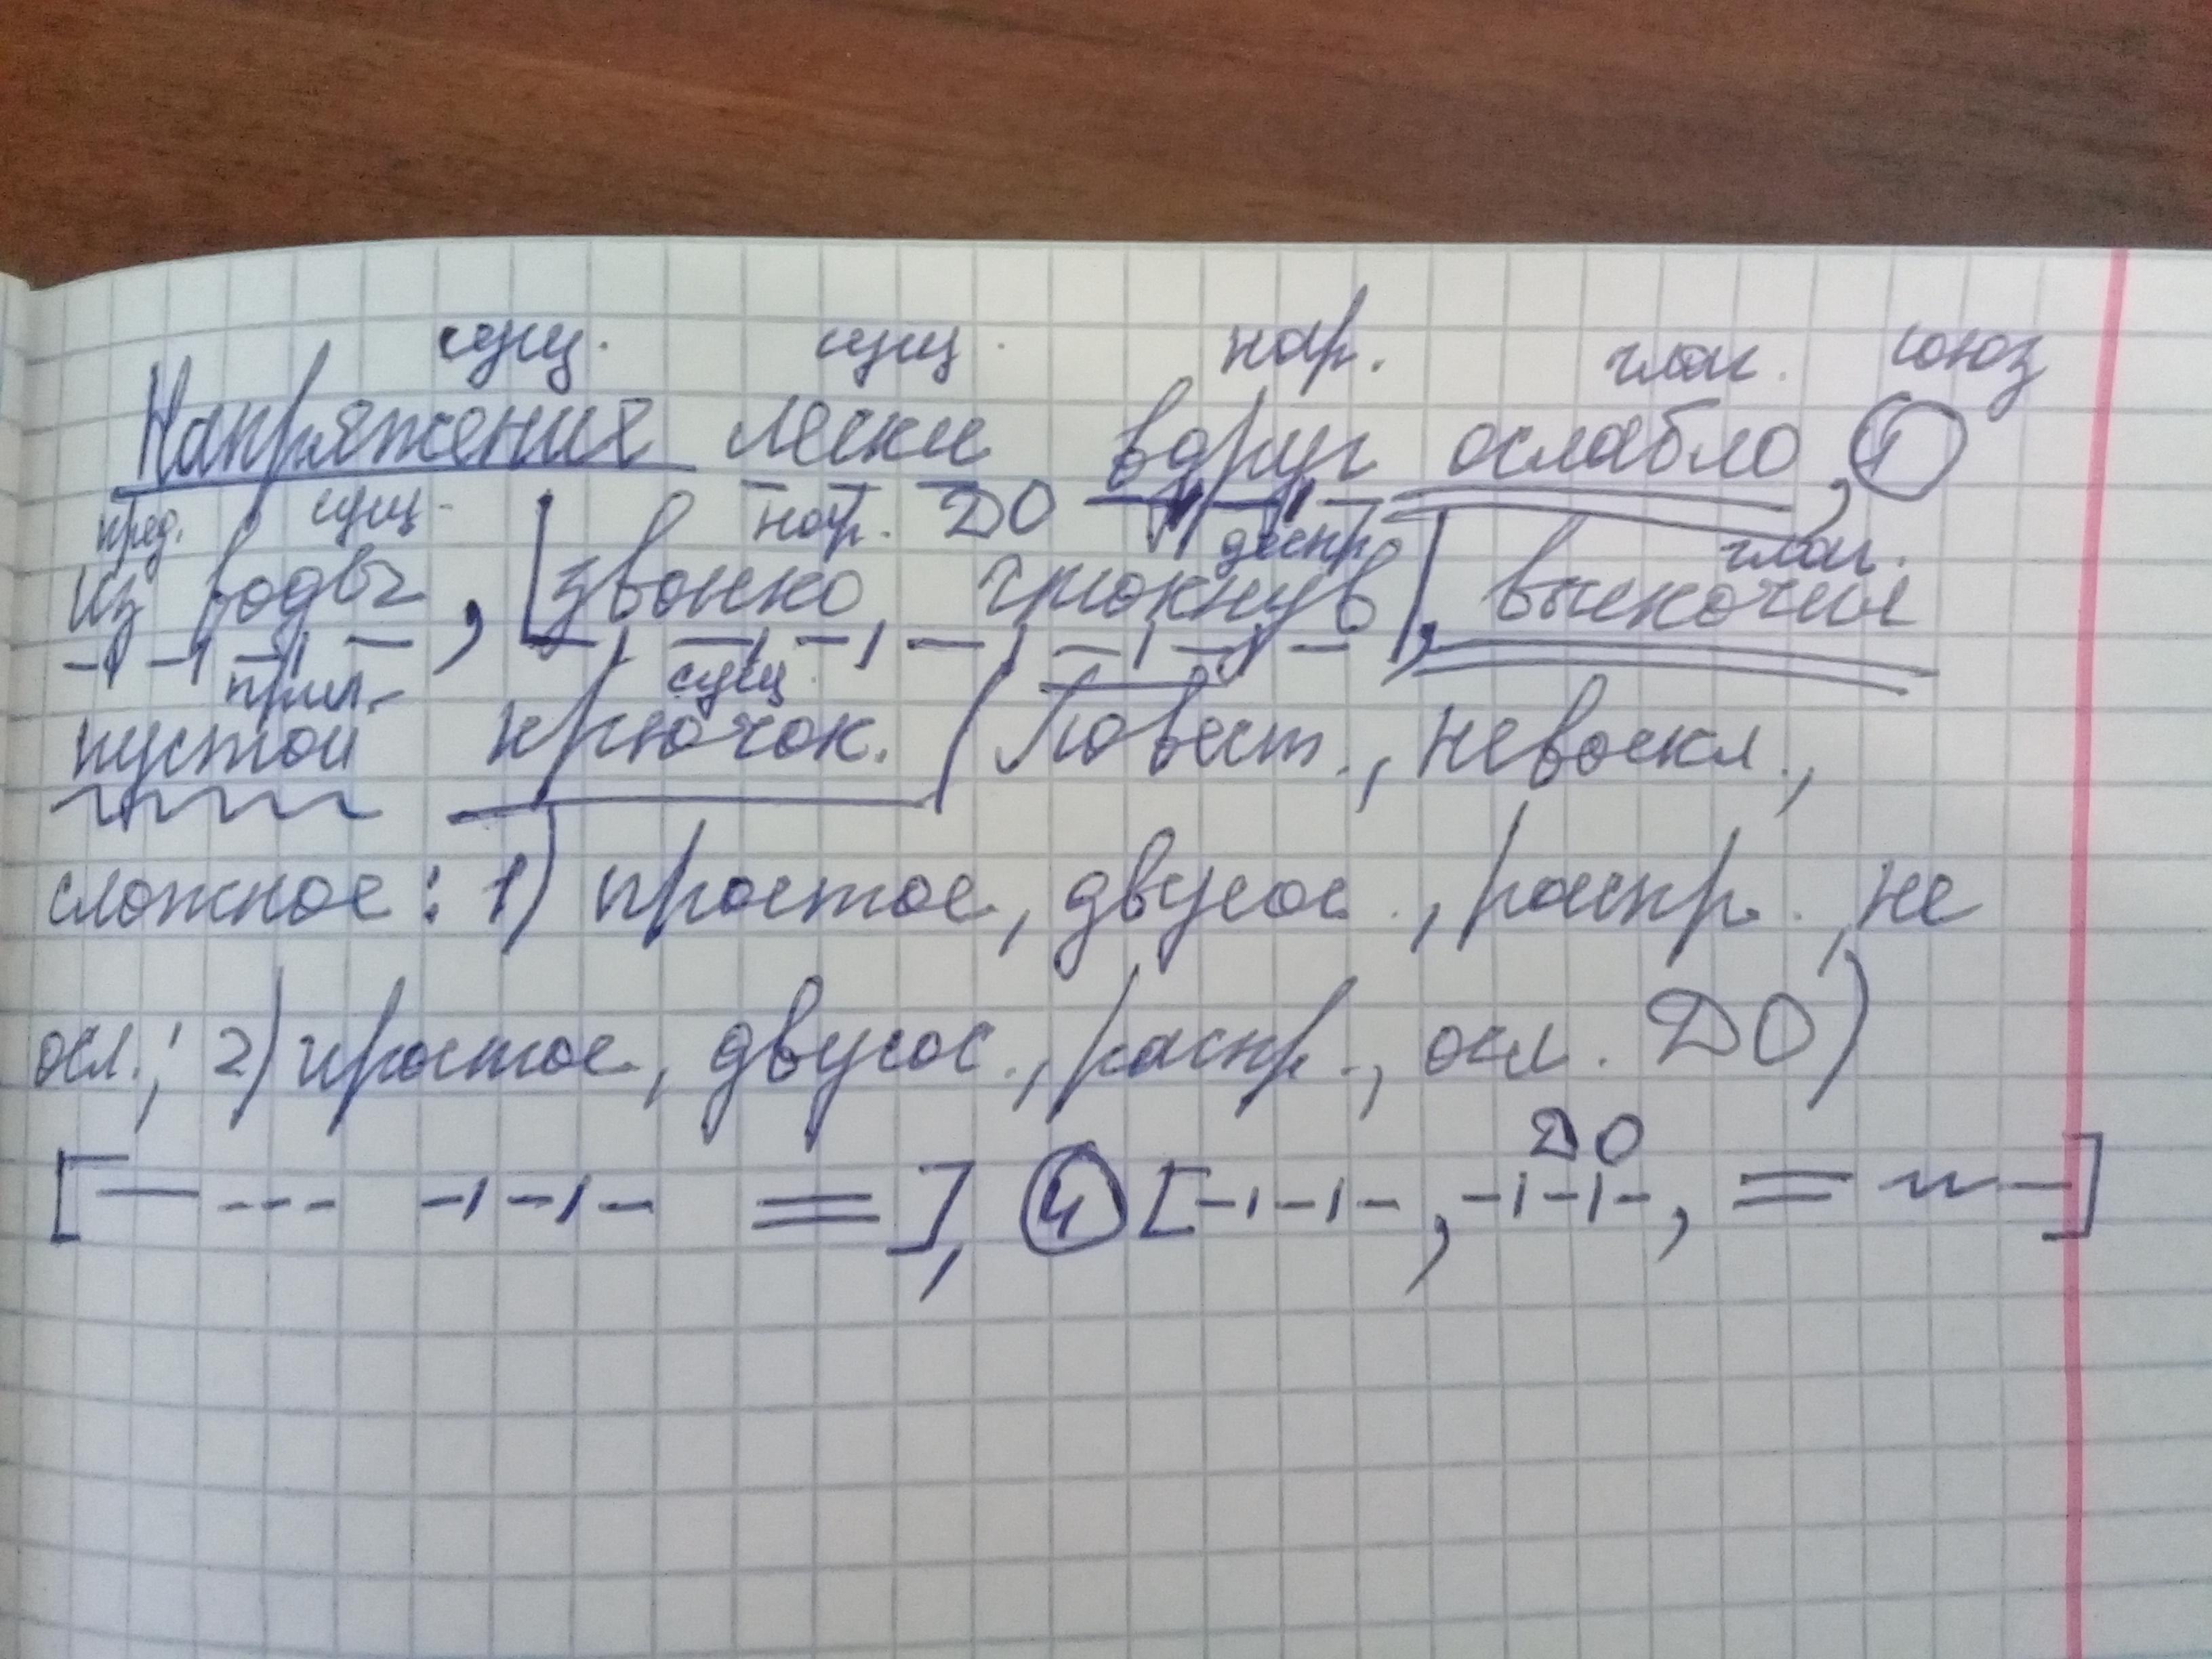 сущ. сущ. нар. глаг. союз
Напряжение лески вдруг ослабло, и
пред. сущ. нар. ДО деепр. глаг.
из воды, звонко чмокнув, выскочил
прил. сущ.
пустой крючок. (Повест., невоскл.,
сложное: 1) простое, двусос., распр., не
осл.; 2) простое, двусос., распр., осл. ДО)
ДО
[ ], и [ , , ]